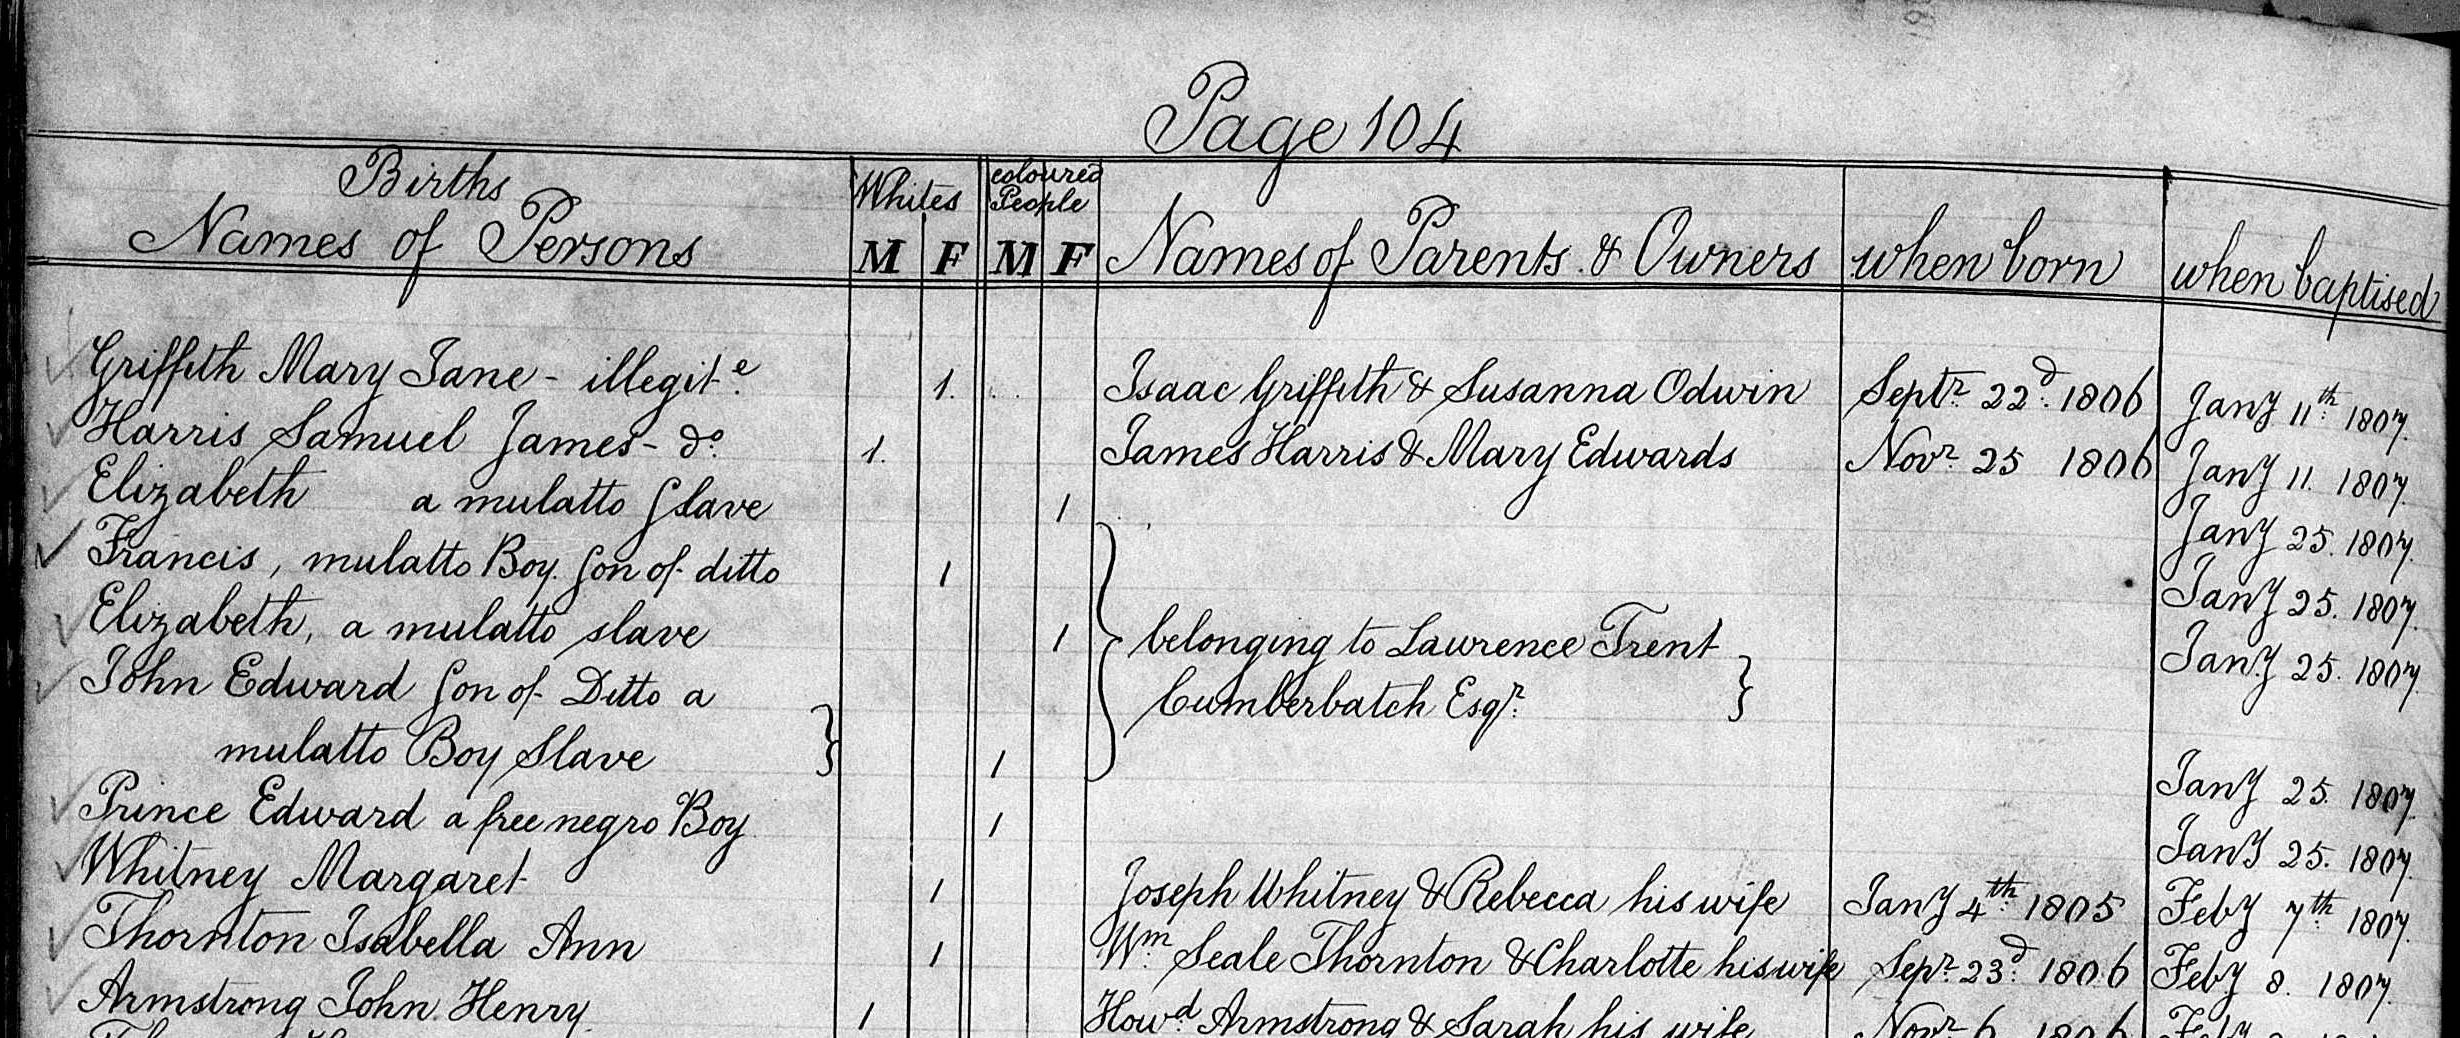 Page 104
Births
Names of Persons
Whites
coloured People
M F M F
Names of Parents & Owners
when born
when baptised
Griffith Mary Jane - illegit.e 1. Isaac Griffith & Susanna Odwin Septr. 22d. 1806 Jany 11th. 1807.
Harris Samuel James - do. 1. James Harris & Mary Edwards Novr. 25 1806 Jany 11. 1807.
Elizabeth a mulatto Slave 1 Jany 25. 1807.
Francis, mulatto Boy. Son of ditto 1 Jany 25. 1807.
Elizabeth, a mulatto slave 1 belonging to Lawrence Trent Jany 25. 1807.
John Edward Son of Ditto a Cumberbatch Esqr.
mulatto Boy Slave 1 Jany 25. 1807.
Prince Edward a free negro Boy 1 Jany 25. 1807.
Whitney Margaret 1 Joseph Whitney & Rebecca his wife Jany 4th. 1805 Feby 7th. 1807.
Thornton Isabella Ann 1 Wm. Seale Thornton & Charlotte his wife Sepr. 23d. 1806 Feby 8. 1807.
Armstrong John Henry. 1 Howd. Armstrong & Sarah his wife Novr. 6 1806 Feby